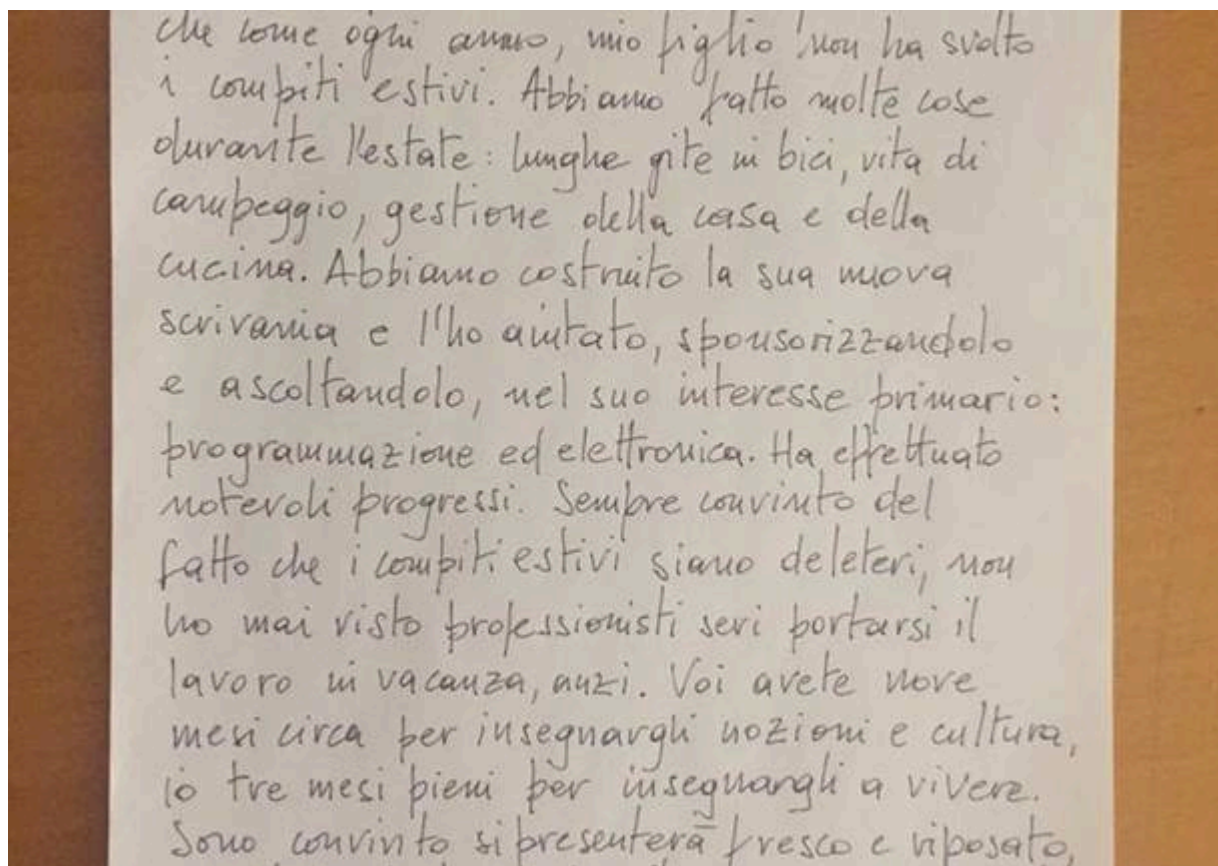 che come ogni anno, mio figlio non ha svolto
i compiti estivi. Abbiamo fatto molte cose
durante l'estate: lunghe gite in bici, vita di
campeggio, gestione della casa e della
cucina. Abbiamo costruito la sua nuova
scrivania e l'ho aiutato, sponsorizzandolo
e ascoltandolo, nel suo interesse primario:
programmazione ed elettronica. Ha effettuato
notevoli progressi. Sempre convinto del
fatto che i compiti estivi siano deleteri, non
ho mai visto professionisti seri portarsi il
lavoro in vacanza, anzi. Voi avete nove
mesi circa per insegnargli nozioni e cultura,
io tre mesi pieni per insegnargli a vivere.
Sono convinto si presenterà fresco e riposato,